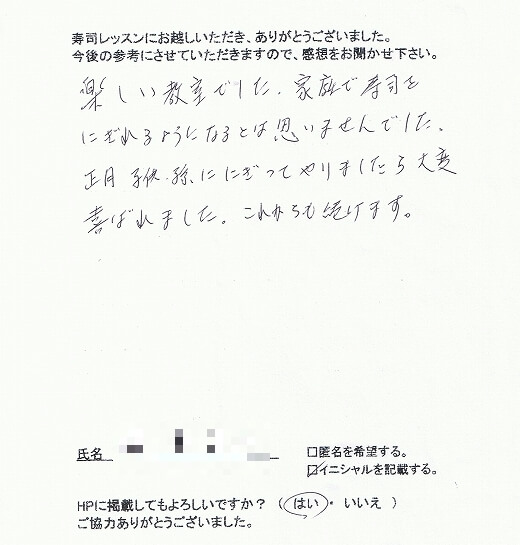 寿司レッスンにお越しいただき、ありがとうございました。
今後の参考にさせていただきますので、感想をお聞かせ下さい。
楽しい教室でした。家庭で寿司を
にぎれるようになるとは思いませんでした。
正月 子供、孫、ににぎってやりましたら大変
喜ばれました。これからも続けます。
氏名
□匿名を希望する。
☑イニシャルを記載する。
HPに掲載してもよろしいですか？（はい・いいえ）
ご協力ありがとうございました。